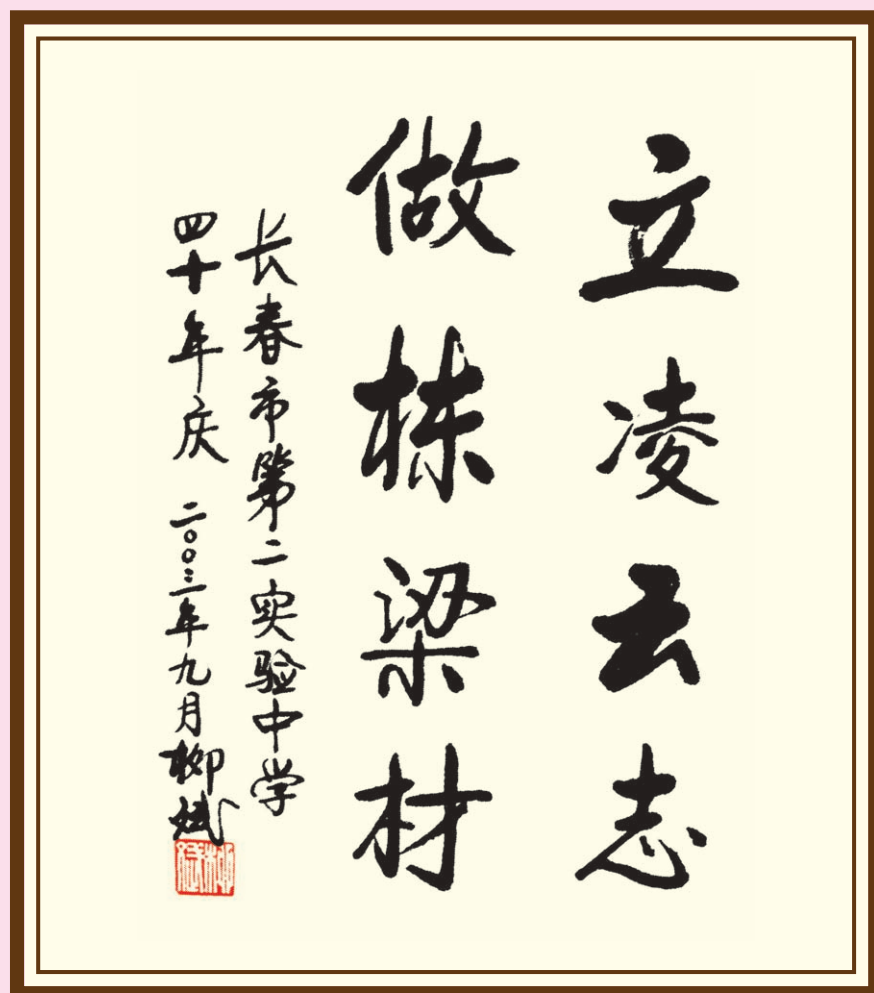 立凌云志
做栋梁材
长春市第二实验中学
四十年庆 二〇〇三年九月柳斌
柳斌